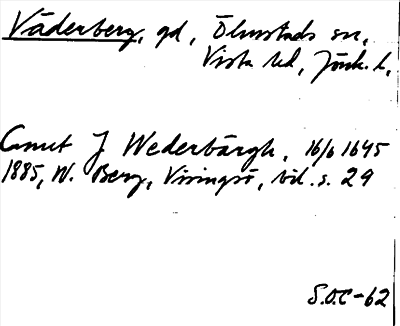 Väderberg, gd, Ölmstads sn,
Vista hd, Jönk. l.
Amut J Wederbärgh, 16/6 1645
1885, W. Berg, Visingsö, bil. s. 29
S.O.C-62